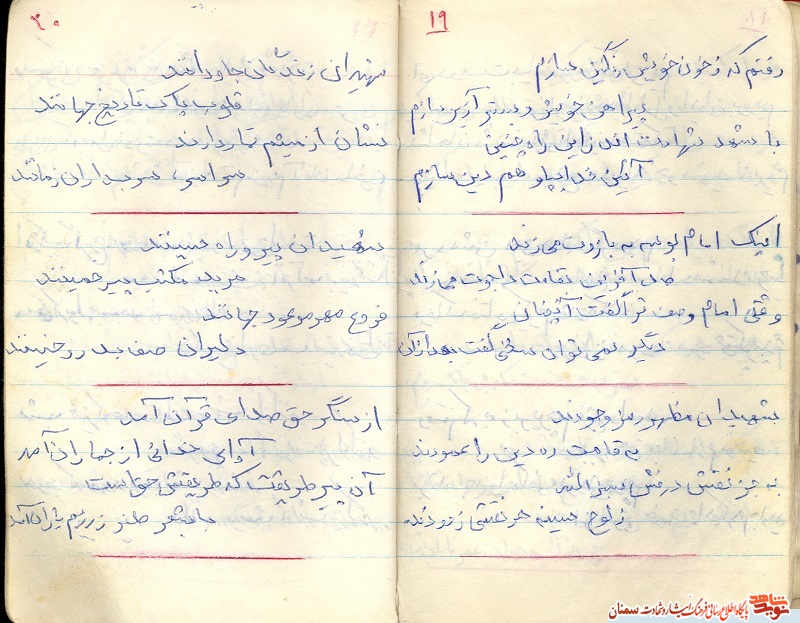 ۱۹
رفتم که ز خون خویش رنگین سازم
پیراهن خویش و بستر آذین سازم
با شهد شهادت اندر این راه چنین
آئین خدا بپا و هم دین سازم
اینک امام بوسه به بازوت می زند
صد آفرین بقامت دلجوت می زند
وقتی امام وصف تو را گفت آنچنان
دیگر نمی توان سخنی گفت بعد از آن
شهیدان مظهر رمز وجودند
به قامت ره دین را عمودند
به هر نقش درفش سبز الله
ز لوح سینه هر نقشی زدودند
۲۰
شهیدان زندگانی جاودانند
قلوب پاک تاریخ جهانند
نشان از میثم تمار دارند
سراسر، سربداران زمانند
شهیدان پیرو راه حسینند
مرید مکتب پیر خمینند
فروغ مهر موعود جهانند
دلیران صف بدر و حنینند
از سنگر حق صدای قرآن آمد
آوای خدائی از جماران آمد
آن پیر طریقت که طریقش حق است
با شعر طنز رزم یاران آمد
نوید شاهد
پایگاه اطلاع رسانی فرهنگ ایثار و شهادت سمنان